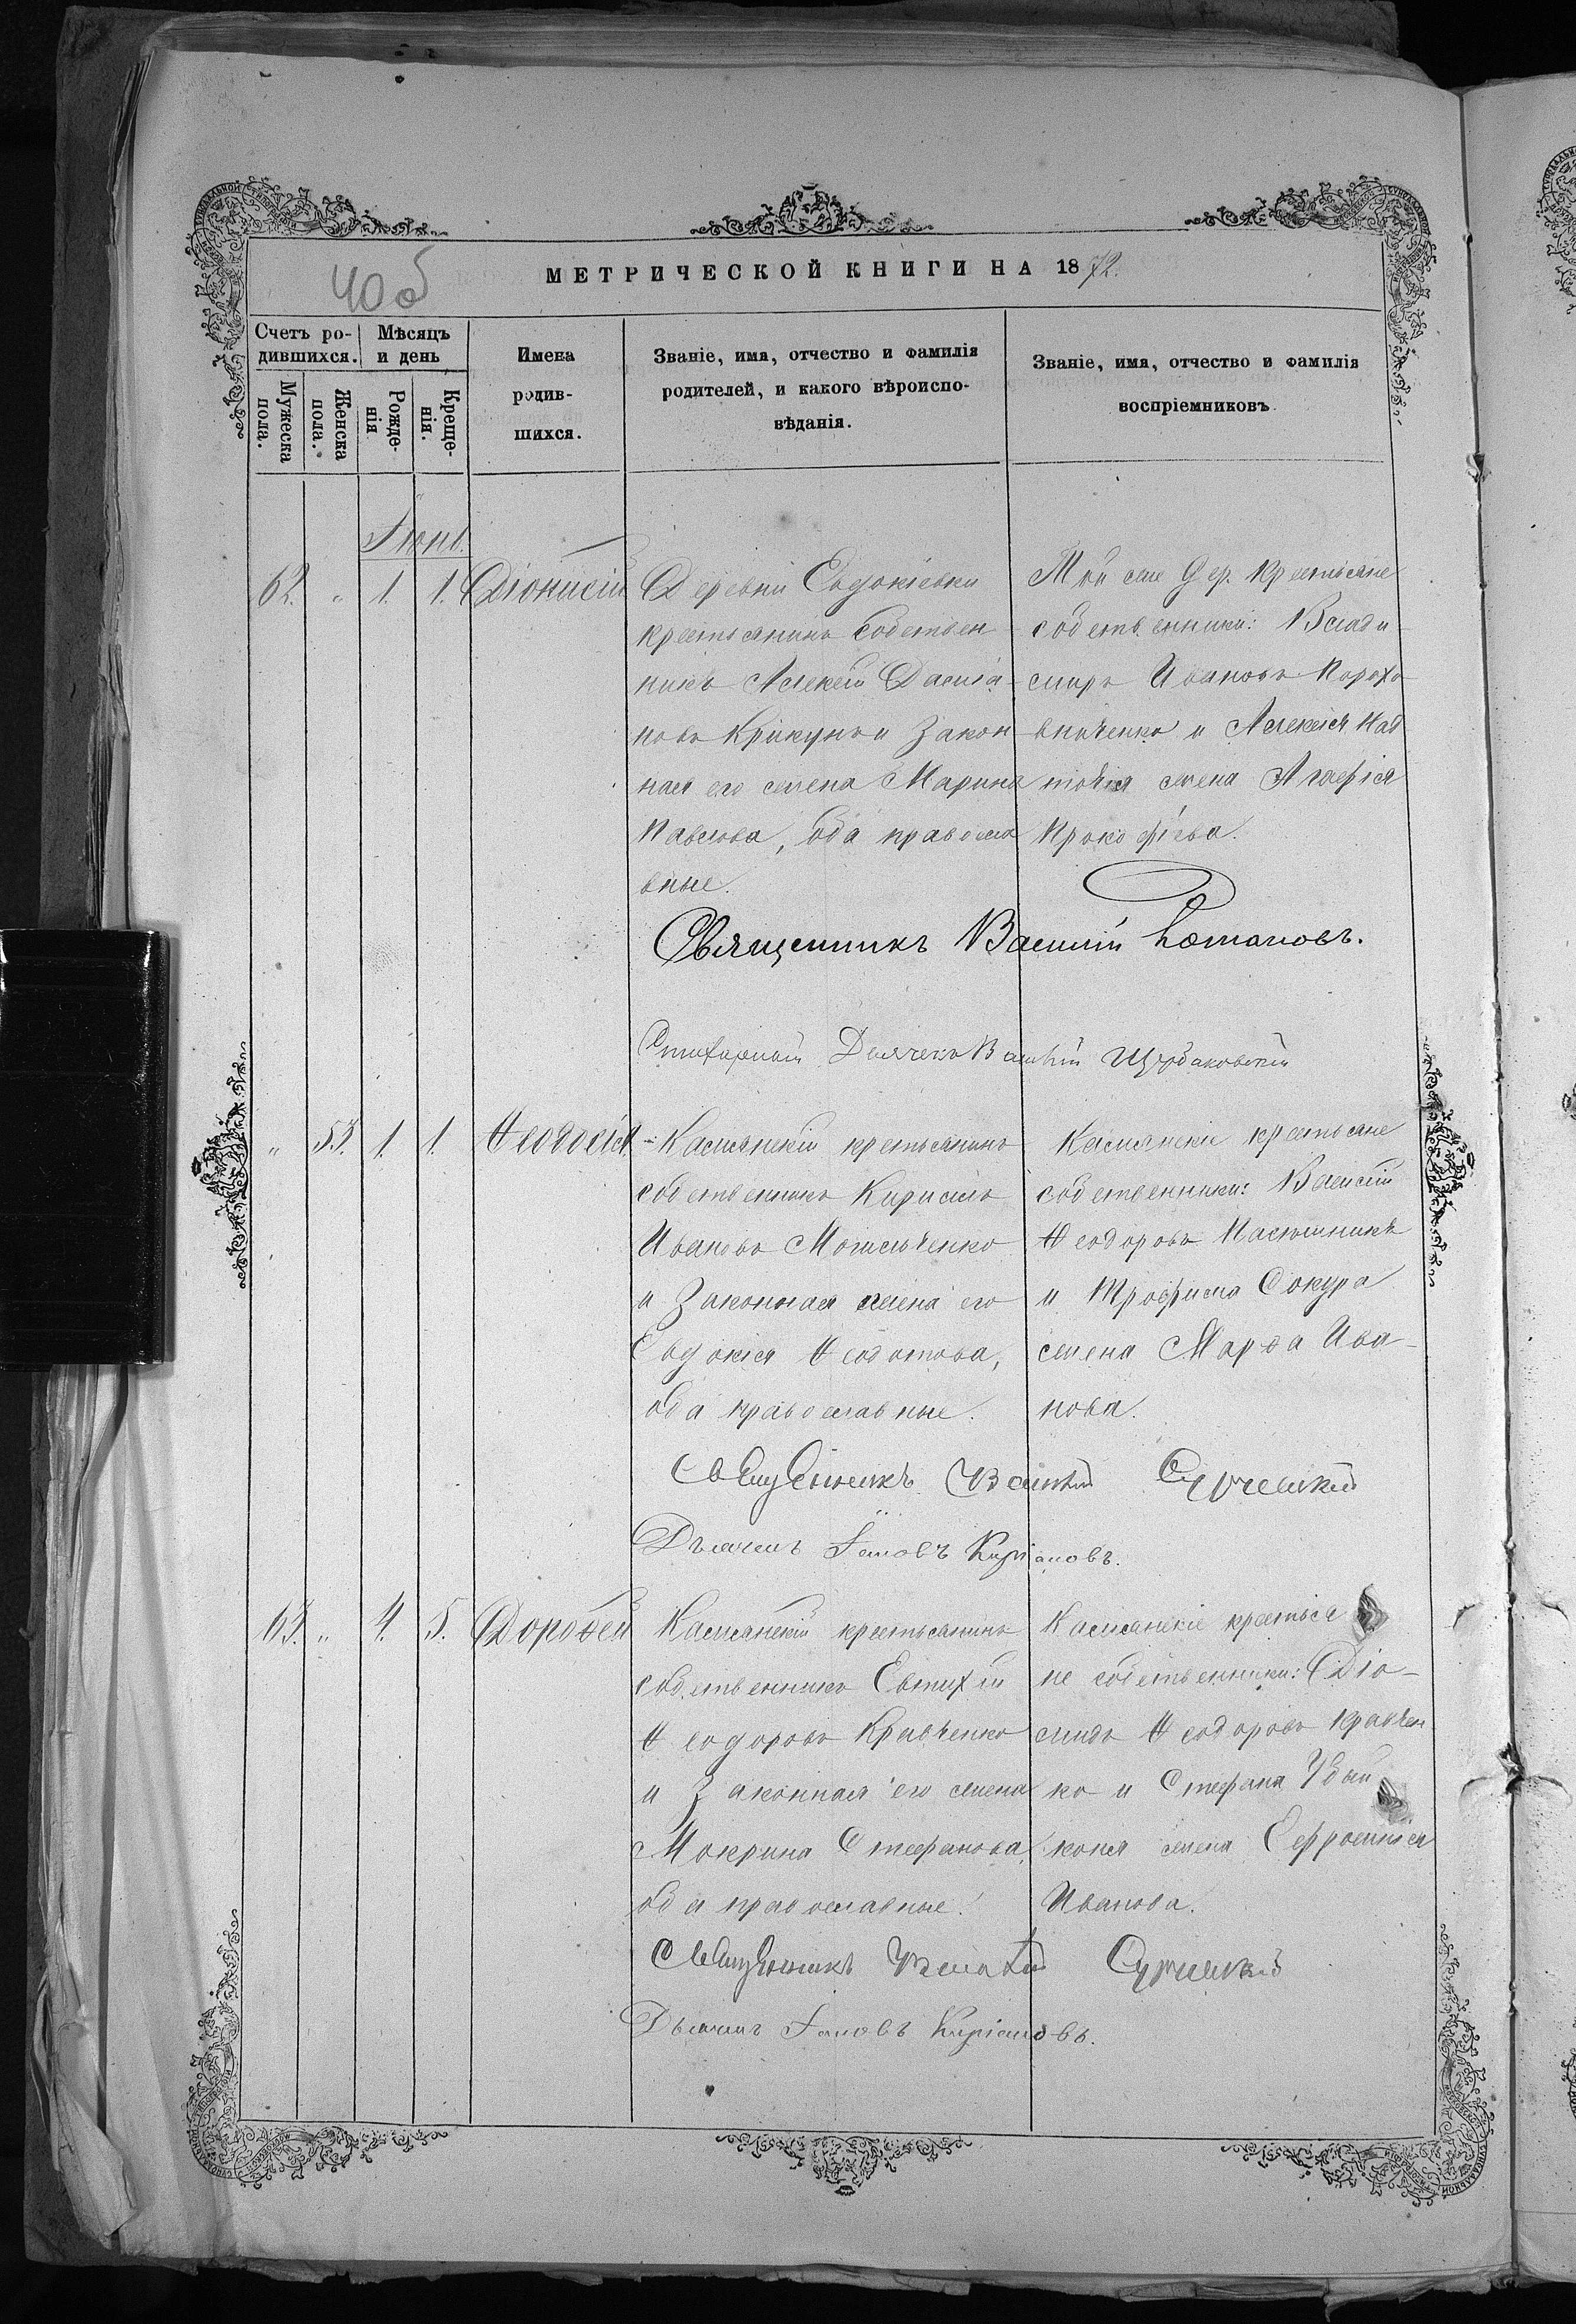 40 об
МЕТРИЧЕСКОЙ КНИГИ НА 1872.
Счетъ ро-
дившихся.
Мѣсяцъ
и день
Мужеска
пола.
Женска
пола.
Рожде-
нія
Креще-
нія.
Имена
родив-
шихся.
Званіе, имя, отчество и фамилія
родителей, и какого вѣроиспо-
вѣданія.
Званіе, имя, отчество и фамилія
воспріемниковъ
Іюнь.
62. " 1. 1. Діонисій
Деревни Евдокіевки
крестьянинъ собствен
никъ Алексій Даміа-
новъ Крикунъ и закон
ная его жена Марина
Павлова, оба правосла
вные.
Той же дер. крестьяне
собственники: Влади
миръ Ивановъ Порохо
вниченко и Алексія
жена Агафія
Прокофіева.
Священникъ Василій Котляновъ.
Стихарный Дьячекъ Василій Щербаковскій
" 53. 1. 1. Ѳеодосія
Касмянскій крестьянинъ
собственникъ Кирилъ
Ивановъ Мотельченко
и законная жена его
Евдокія Ѳеодотова,
оба православные.
Касмянскіе крестьяне
собственники: Василій
Ѳеодоровъ Пасюшникъ
и Трофима Сокура
жена Марѳа Ива-
нова.
Священникъ Василій
Дьячекъ Іаковъ Кирiаковъ.
63. " 4. 5. Дороѳей
Касмянскій крестьянинъ
собственникъ Евтихій
Ѳеодоровъ Кравченко
и законная его жена
Мокрина Стефанова
оба православные.
Касмянскіе крестья
не собственники: Діо-
мидъ Ѳеодоровъ Кравчен
ко и Стефана
жена Ефросинія
Иванова.
Священникъ Василій
Дьячекъ Іаковъ Кирiаковъ.